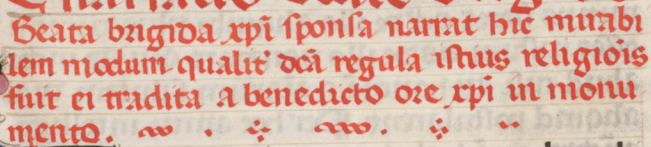 Beata brigida xpi sponsa narrat hic mirabi
lem modum qualit dca regula istius religiois
fuit ei tradita a benedicto ore xpi in monu
mento.